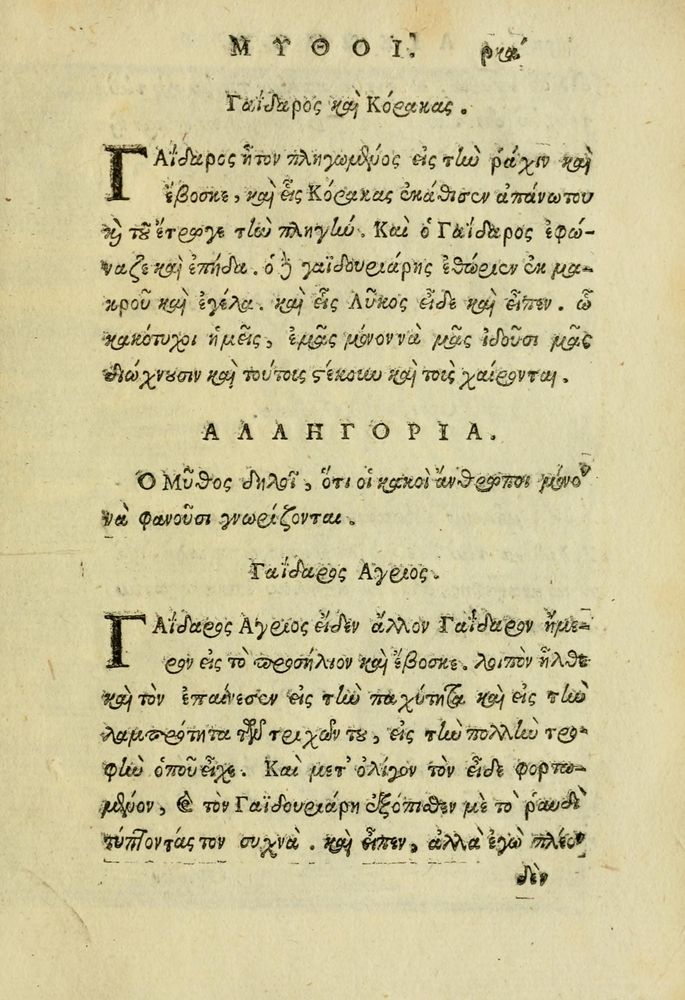 ΜΥΘΟΙ. ρκα΄
Γαΐδαρος καὶ Κόρακας.
ΓΑΐδαρος ἦτον πληγωμένος εἰς τὴν ῥάχιν καὶ
ἔβοσκε, καὶ εἷς Κόρακας ἐκάθισεν ἀπάνωτου
κὶ τοῦ ἔτρωγε τὴν πληγήν. Καὶ ὁ Γαΐδαρος ἐφώ-
ναζε καὶ ἐπήδα. ὁ δὲ γαϊδουριάρης ἐθώριεν ἐκ μα-
κροῦ καὶ ἐγέλα. καὶ εἷς Λῦκος εἶδε καὶ εἶπεν. ὦ
κακότυχοι ἡμεῖς, ἐμᾶς μόνον νὰ μᾶς ἰδοῦσι μᾶς
διώχνουσιν καὶ τούτοις στέκουν καὶ τοῖς χαίρονται.
ΑΛΛΗΓΟΡΙΑ.
Ὁ Μῦθος δηλοῖ, ὅτι οἱ κακοὶ ἄνθρωποι μόνον
νὰ φανοῦσι γνωρίζονται.
Γαΐδαρος Αγριος.
ΓΑΐδαρος Αγριος εἶδεν ἄλλον Γαΐδαρον ἥμε-
ρον εἰς τὸ προσήλιον καὶ ἔβοσκε. λοιπὸν ἦλθε
καὶ τὸν ἐπαίνεσεν εἰς τὴν παχύτητα καὶ εἰς τὴν
λαμπρότητα τῶν τριχῶν του, εἰς τὴν πολλὴν τρο-
φὴν ὁποῦ εἶχε. Καὶ μετ' ὀλίγον τὸν εἶδε φορτω-
μένον, καὶ τὸν Γαϊδουριάρη ἐξόπισθεν μὲ τὸ ῥαυδὶ
τύπτοντάς τον συχνά. καὶ εἶπεν, ἀλλὰ ἐγὼ πλέον
δὲν